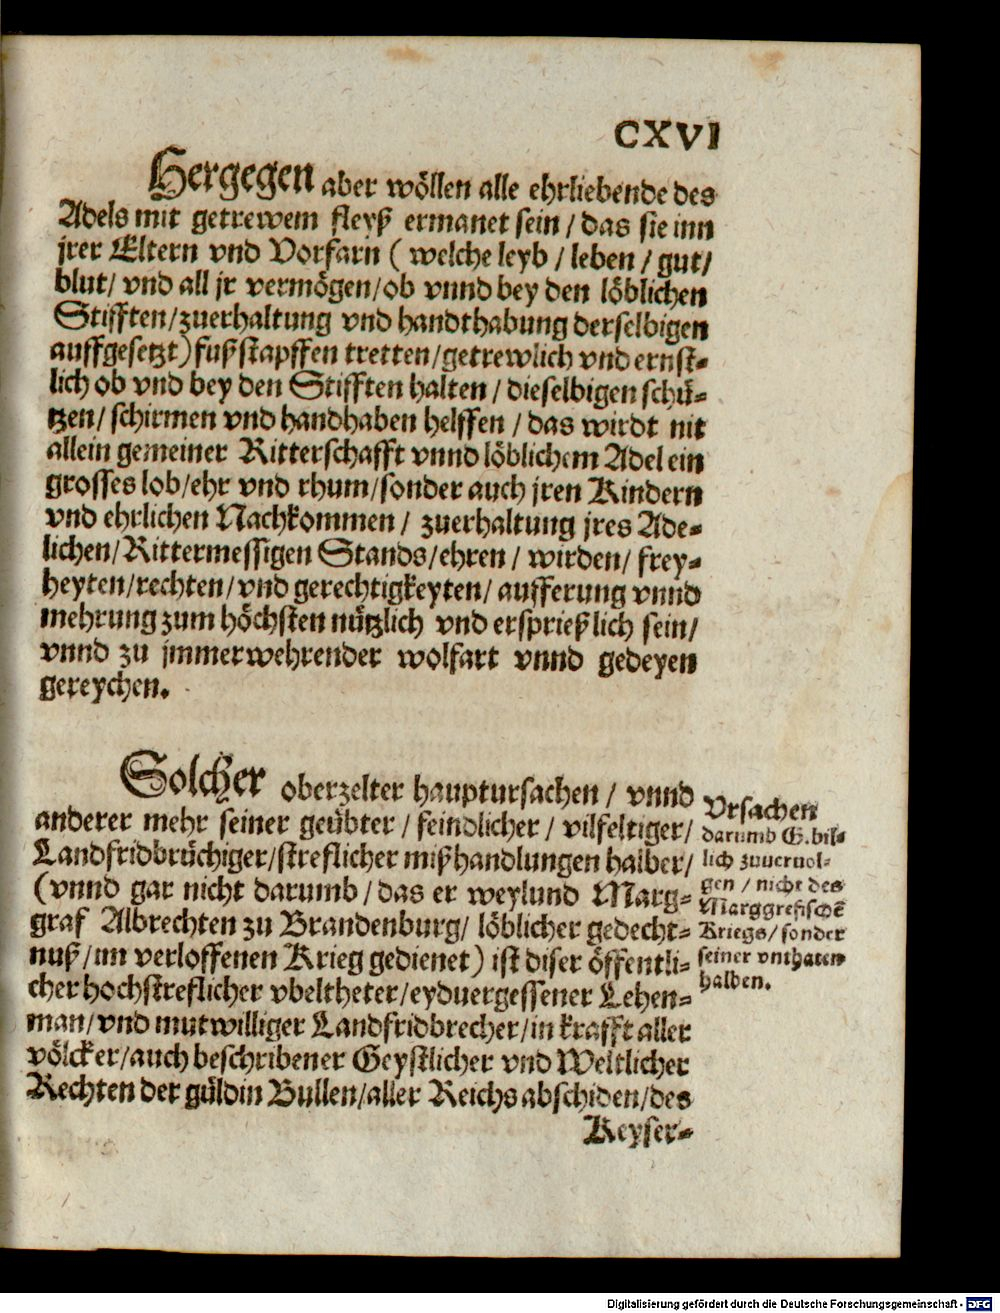 CXVI
Hergegen aber wöllen alle ehrliebende des
Adels mit getrewem fleyß ermanet sein / das sie inn
jrer Eltern vnd Vorfarn ( welche leyb / leben / gut/
blut/ vnd all jr vermögen/ob vnnd bey den löblichen
Stifften/zuerhaltung vnd handthabung derselbigen
auffgesetzt) fußstapffen tretten/getrewlich vnd ernst-
lich ob vnd bey den Stifften halten / dieselbigen schü-
tzen/ schirmen vnd handhaben helffen / das wirdt nit
allein gemeiner Ritterschafft vnnd löblichem Adel ein
grosses lob/ehr vnd rhum/sonder auch jren Kindern
vnd ehrlichen Nachkommen / zuerhaltung jres Ade-
lichen/Rittermessigen Stands/ehren / wirden/ frey-
heyten/rechten/vnd gerechtigkeyten/ aufferung vnnd
mehrung zum höchsten nützlich vnd ersprießlich sein/
vnnd zu jmmerwehrender wolfart vnnd gedeyen
gereychen.
Solcher oberzelter hauptursachen / vnnd
anderer mehr seiner geübter / feindlicher / vilfeltiger/
Landfridbrüchiger/streflicher mißhandlungen halber/
(vnnd gar nicht darumb / das er weylund Marg-
graf Albrechten zu Brandenburg/ löblicher gedecht-
nuß/im verloffenen Krieg gedienet) ist diser öffentli-
cher hochstreflicher vbeltheter/eyduergessener Lehen-
man/vnd mutwilliger Landfridbrecher/in krafft aller
völcker/auch beschribener Geystlicher vnd Weltlicher
Rechten der güldin Bullen/aller Reichs abschiden/des
Keyser-
Vrsachen
darumb G. bil-
lich zuueruol-
gen / nicht des
Marggrefischē
Kriegs/ sonder
seiner vnthaten
halben.
Digitalisierung gefördert durch die Deutsche Forschungsgemeinschaft - DFG